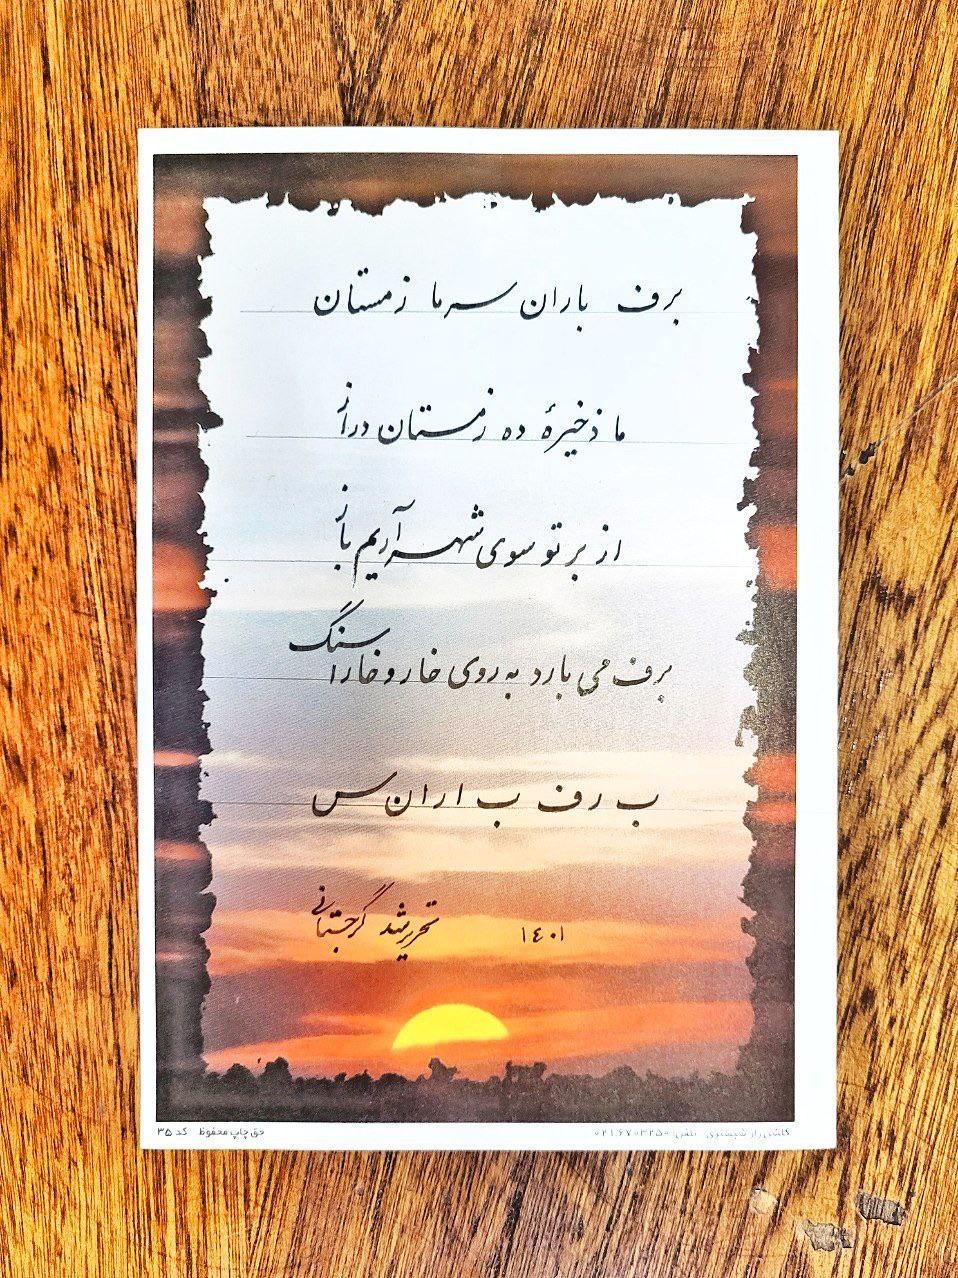 برف باران سرما زمستان
ما ذخیرهٔ ده زمستان دراز
از بر تو سوی شهر آریم باز
برف می بارد به روی خار و خارا سنگ
ب رف ب اران س
۱۴۰۱ تحریر شد گرجستانی
گلشن راز شبستری تلفن: ۰۲۱۶۶۷۰۳۲۵۰ حق چاپ محفوظ کد ۳۵